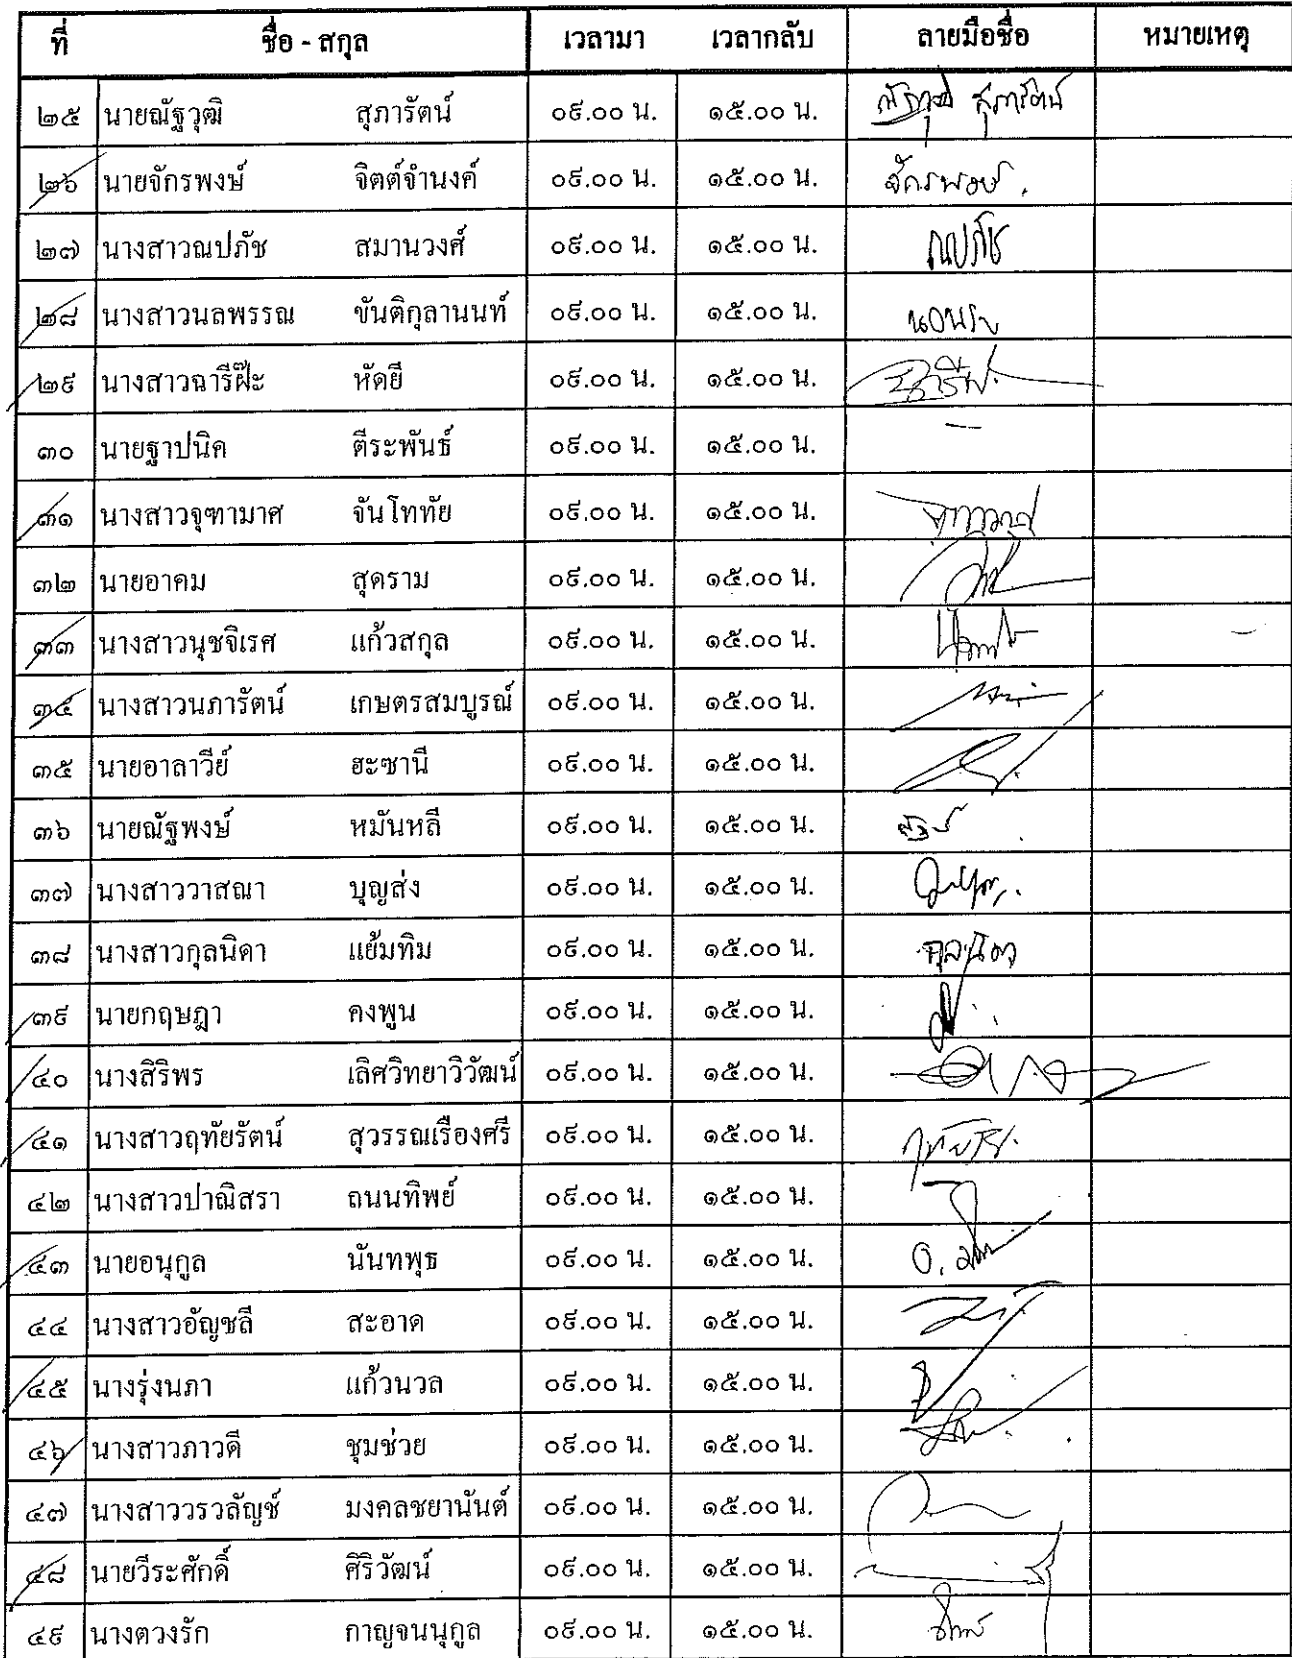 ที่ ชื่อ - สกุล เวลามา เวลากลับ ลายมือชื่อ หมายเหตุ
๒๕ นายณัฐวุฒิ สุภารัตน์ ๐๙.๐๐ น. ๑๕.๐๐ น. ณัฐวุฒิ สุภารัตน์
๒๖ นายจักรพงษ์ จิตต์จำนงค์ ๐๙.๐๐ น. ๑๕.๐๐ น. จักรพงษ์.
๒๗ นางสาวณปภัช สมานวงศ์ ๐๙.๐๐ น. ๑๕.๐๐ น. ณปภัช
๒๘ นางสาวนลพรรณ ขันติกุลานนท์ ๐๙.๐๐ น. ๑๕.๐๐ น.
๒๙ นางสาวฉารีฝ๊ะ หัดยี ๐๙.๐๐ น. ๑๕.๐๐ น.
๓๐ นายฐาปนิค ตีระพันธ์ ๐๙.๐๐ น. ๑๕.๐๐ น. -
๓๑ นางสาวจุฑามาศ จันโททัย ๐๙.๐๐ น. ๑๕.๐๐ น.
๓๒ นายอาคม สุดราม ๐๙.๐๐ น. ๑๕.๐๐ น.
๓๓ นางสาวนุชจิเรศ แก้วสกุล ๐๙.๐๐ น. ๑๕.๐๐ น.
๓๔ นางสาวนภารัตน์ เกษตรสมบูรณ์ ๐๙.๐๐ น. ๑๕.๐๐ น.
๓๕ นายอาลาวีย์ ฮะซานี ๐๙.๐๐ น. ๑๕.๐๐ น.
๓๖ นายณัฐพงษ์ หมันหลี ๐๙.๐๐ น. ๑๕.๐๐ น.
๓๗ นางสาววาสณา บุญส่ง ๐๙.๐๐ น. ๑๕.๐๐ น.
๓๘ นางสาวกุลนิดา แย้มทิม ๐๙.๐๐ น. ๑๕.๐๐ น. กุลนิดา
๓๙ นายกฤษฎา คงพูน ๐๙.๐๐ น. ๑๕.๐๐ น.
๔๐ นางสิริพร เลิศวิทยาวิวัฒน์ ๐๙.๐๐ น. ๑๕.๐๐ น.
๔๑ นางสาวฤทัยรัตน์ สุวรรณเรืองศรี ๐๙.๐๐ น. ๑๕.๐๐ น.
๔๒ นางสาวปาณิสรา ถนนทิพย์ ๐๙.๐๐ น. ๑๕.๐๐ น.
๔๓ นายอนุกูล นันทพุธ ๐๙.๐๐ น. ๑๕.๐๐ น.
๔๔ นางสาวอัญชลี สะอาด ๐๙.๐๐ น. ๑๕.๐๐ น.
๔๕ นางรุ่งนภา แก้วนวล ๐๙.๐๐ น. ๑๕.๐๐ น.
๔๖ นางสาวภาวดี ชุมช่วย ๐๙.๐๐ น. ๑๕.๐๐ น.
๔๗ นางสาววรวลัญช์ มงคลชยานันต์ ๐๙.๐๐ น. ๑๕.๐๐ น.
๔๘ นายวีระศักดิ์ ศิริวัฒน์ ๐๙.๐๐ น. ๑๕.๐๐ น.
๔๙ นางตวงรัก กาญจนนุกูล ๐๙.๐๐ น. ๑๕.๐๐ น.